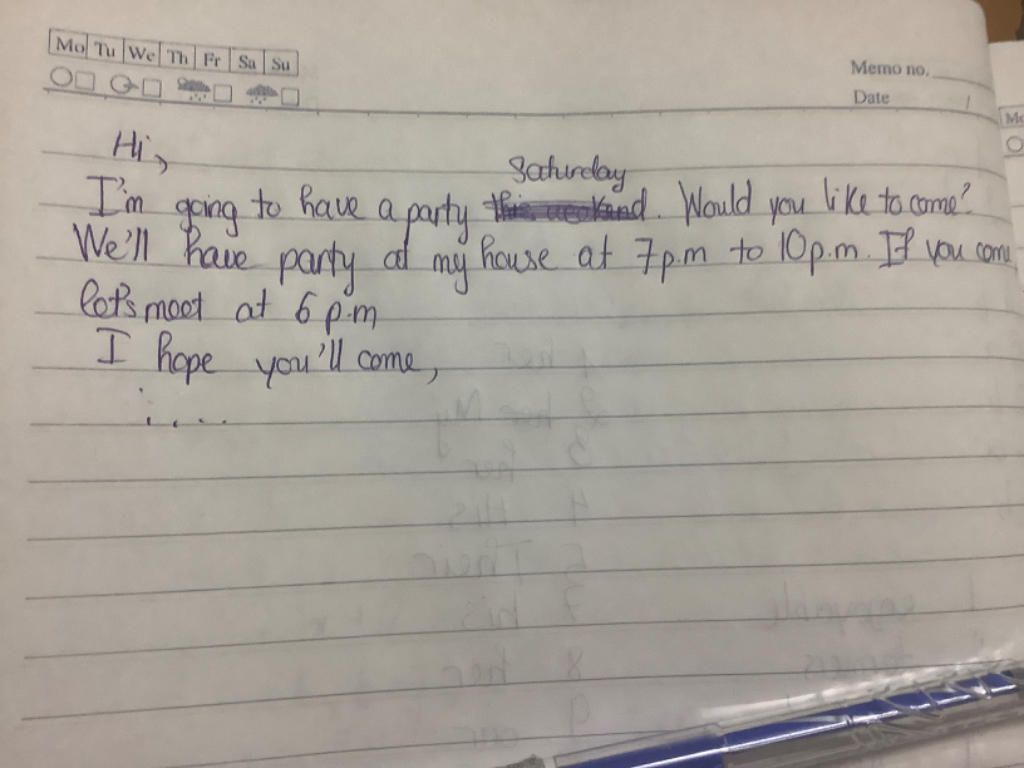 Mo Tu We Th Fr Sa Su
Memo no.
Date
Hi,
Saturday
I'm going to have a party this weekend. Would you like to come?
We'll have party at my house at 7p.m to 10p.m. If you come
let's meet at 6 p.m
I hope you'll come,